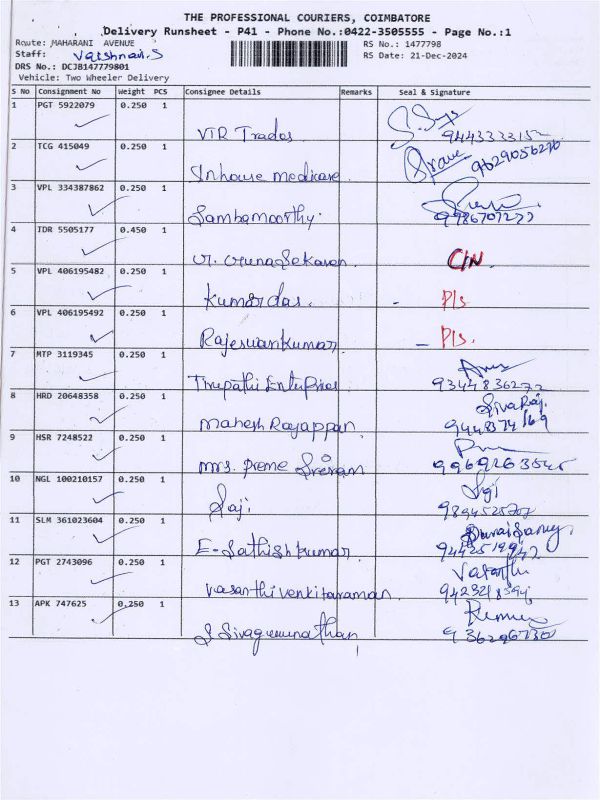 THE PROFESSIONAL COURIERS, COIMBATORE
Delivery Runsheet - P41 - Phone No.:0422-3505555 - Page No.:1
Route: MAHARANI AVENUE
RS No.: 1477798
Staff: Vaishnavi.S
RS Date: 21-Dec-2024
DRS No.: DCJB147779801
Vehicle: Two Wheeler Delivery
S No Consignment No Weight PCS Consignee Details Remarks Seal & Signature
1 PGT 5922079 0.250 1
VTR Trados 9443333152
2 TCG 415049 0.250 1
Inhouse medicare 9629056270
3 VPL 334387862 0.250 1
Sambamoorthy. 9786707277
4 IDR 5505177 0.450 1
C/N.
5 VPL 406195482 0.250 1
Kumar das. - P/s.
6 VPL 406195492 0.250 1
Rajeswankumar - P/s.
7 MTP 3119345 0.250 1
Tirupathi Enterprises 9344836272
8 HRD 20648358 0.250 1
Sivaraj.
Mahesh Rajappan 9448374169
9 HSR 7248522 0.250 1
mrs. preme Sriram
10 NGL 100210157 0.250 1
Saji
Saji
11 SLM 361023604 0.250 1
E-Sathishkumar
12 PGT 2743096 0.250 1
Vasanthi
Vasanthi venkitaraman
13 APK 747625 0.250 1
S Sivagurunathan 9362967301